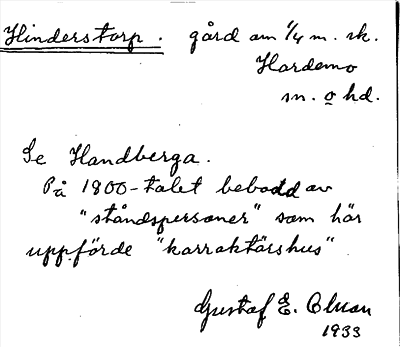 Hinderstorp. gård om 1/4 m. sk.
Hardemo
sn. o hd.
Se Handberga.
På 1800-talet bebodd av
"ståndspersoner" som här
uppförde "karraktärshus"
Gustaf E.
1933